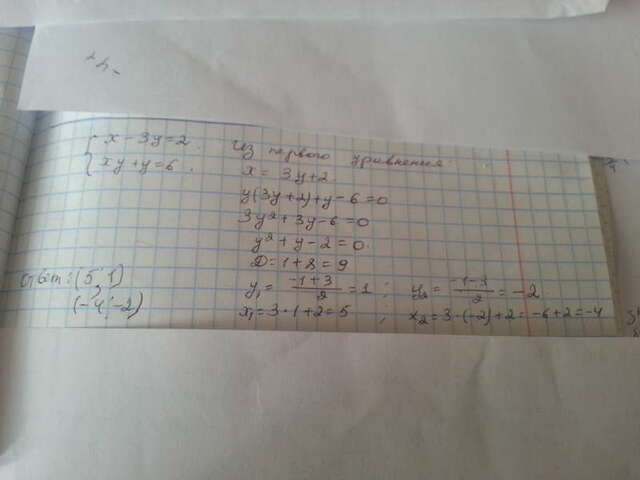 { x - 3y = 2.
{ xy + y = 6.
Из первого уравнения
x = 3y+2
y(3y+2)+y-6=0
3y²+3y-6=0
y²+y-2=0.
D=1+8=9
y₁ = (-1+3)/2 = 1 ; y₂ = (-1-3)/2 = -2
x₁=3·1+2=5 ; x₂=3·(-2)+2=-6+2=-4
Ответ: (5; 1)
(-4; -2)